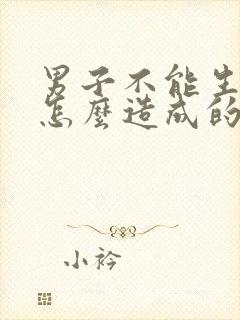 男子不能生
怎麼造成的
小衿